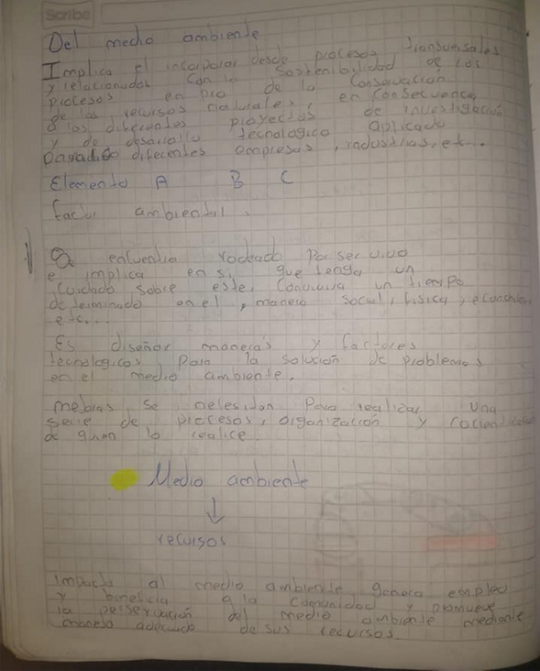 Scribe
Del medio ambiente
Implica el incorporar desde procesos transversales
y relacionados con la sostenibilidad de los
procesos en pro de la conservación
de los recursos naturales, en consecuencia
a los diferentes proyectos de investigación
y de desarrollo tecnologico aplicado
para diferentes empresas, industrias, etc...
Elemento A B C
factor ambiental.
encuentra rodeado por ser vivo
e implica en si, que tenga un
cuidado sobre este, conviva un tiempo
determinado en el, manera social, fisica, economica,
etc...
Es diseñar maneras y factores
tecnologicos para la solución de problemas
en el medio ambiente.
se nelesitan para realizar una
serie de procesos, organización y
de quien lo realice.
Medio ambiente
↓
recursos
Impacto al medio ambiente, genera empleo
y beneficia a la comunidad y promueve
la perservación del medio ambiente mediante
manejo adecuado de sus recursos.